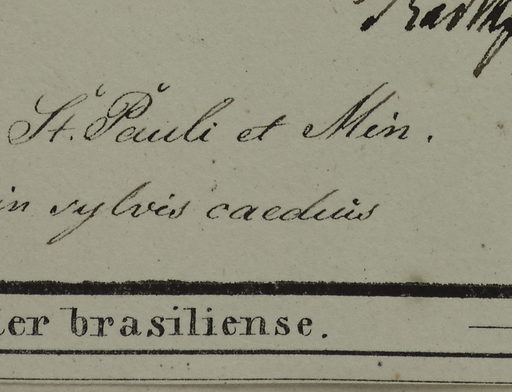 St. Pauli et Min.
in sylvis caeduis
ter brasiliense.